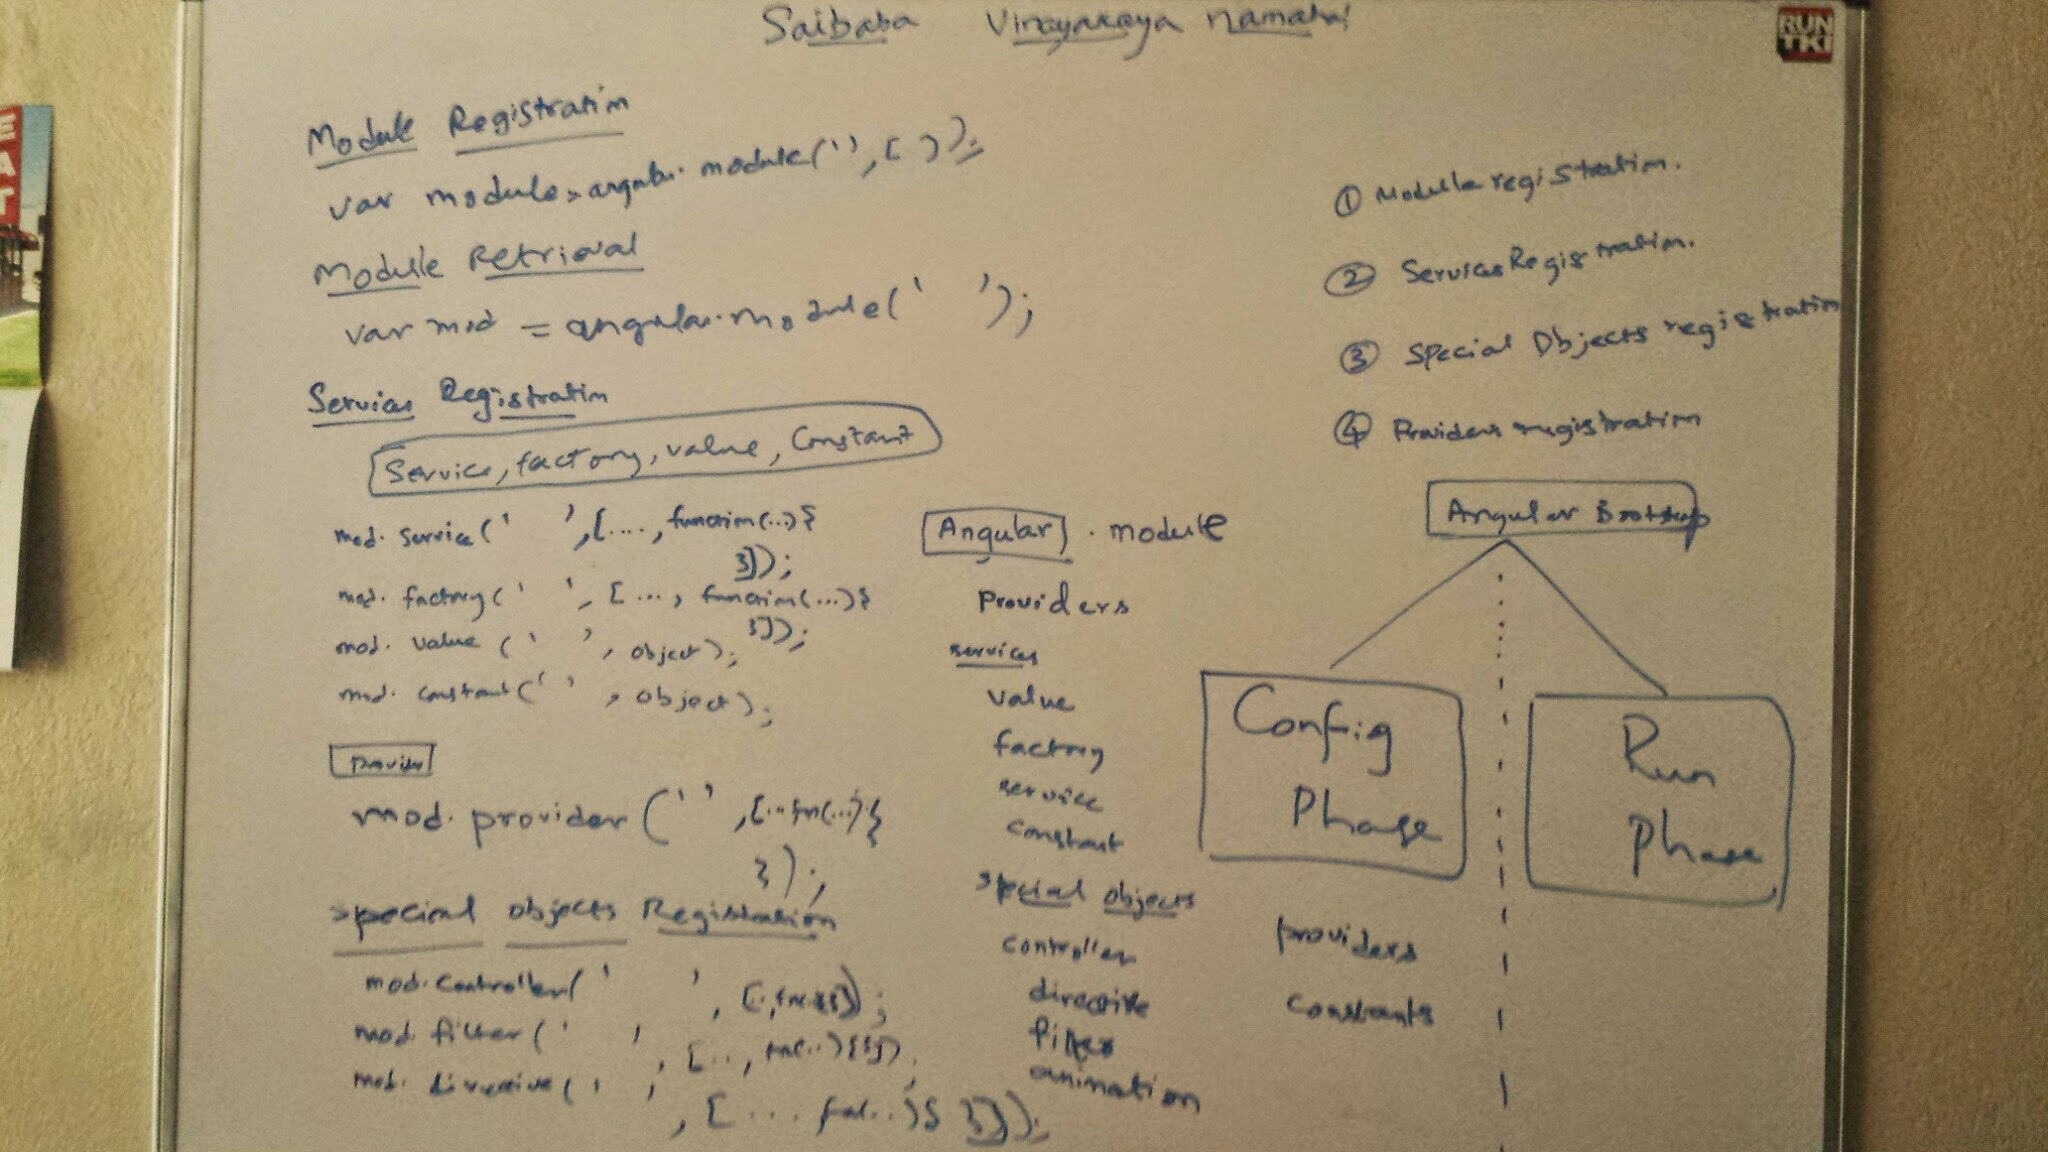 Saibaba Vinayakaya namaha!
RUN
TKI
E
A
T
Module Registration
var module = angular.module('',[ ]);
Module Retrieval
var mod = angular.module(' ');
Services Registration
Service, factory, value, Constant
mod. service(' ',[...., function(...){
}]);
mod. factory(' ', [ ..., function(...){
}]);
mod. value (' ', object);
mod. constant(' ', object);
Provider
mod. provider('',[...fn(...){
});
special objects Registration
mod.controller(' ',
mod. filter(' ', [.., fn(..){}]);
mod. directive(' '
, [ ... fn(..){ }]);
Angular . module
Providers
services
value
factory
service
constant
special objects
controller
directive
filter
animation
① Module registration.
② Services Registration.
③ Special Objects registration
④ Providers registration
Angular Bootstrap
Config
Phase
Run
Phase
providers
constants